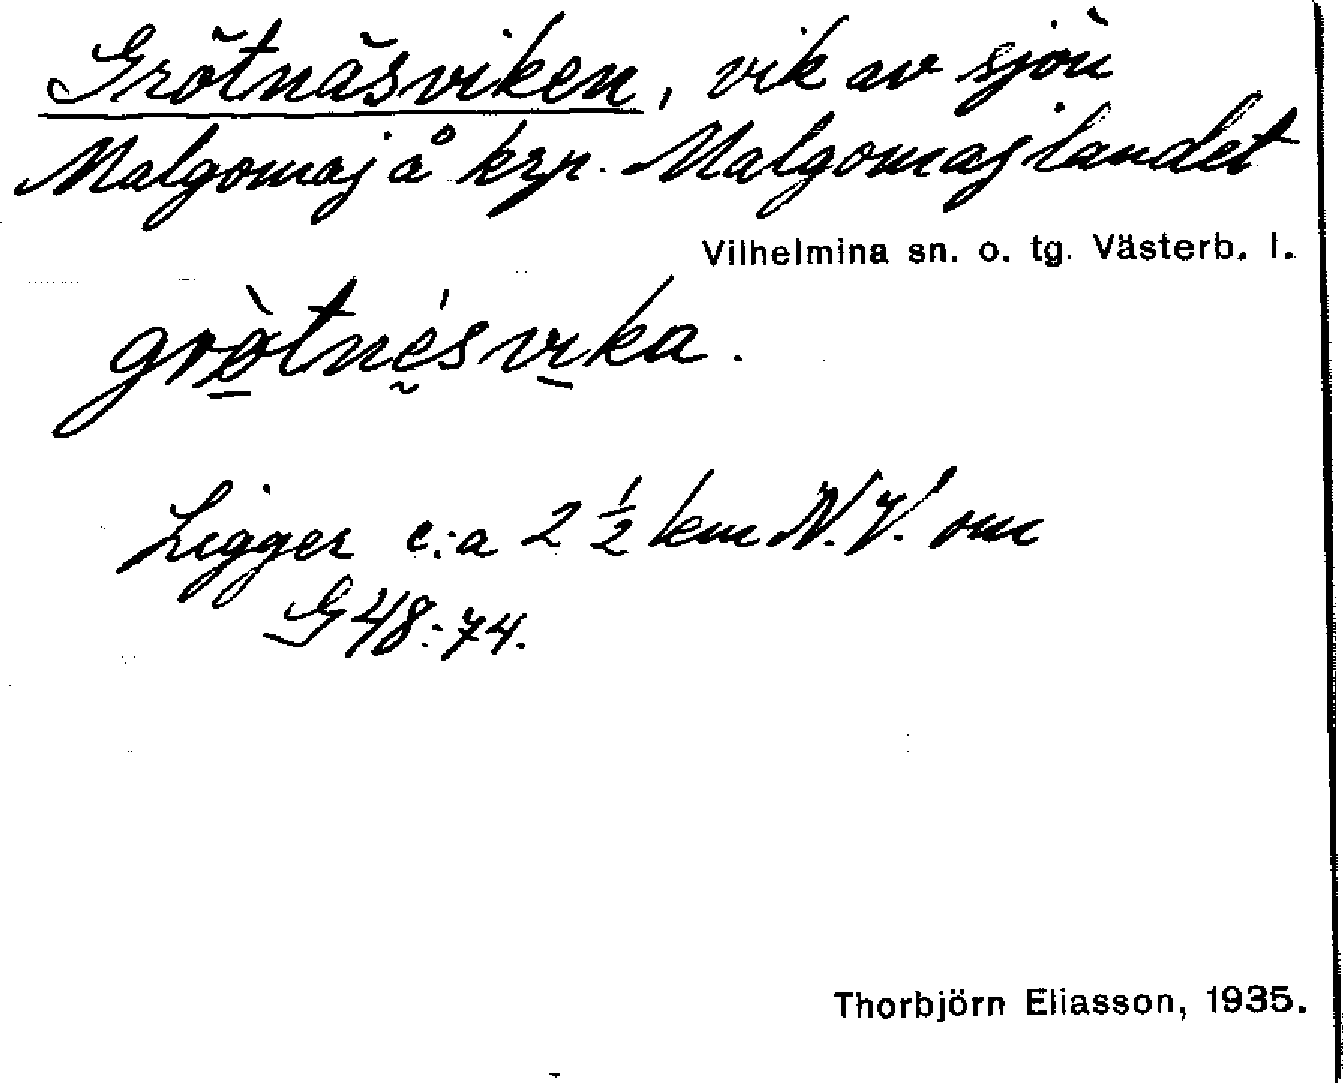 Grötnäsviken, vik av sjön
Malgomaj å krp. Malgomajlandet
Vilhelmina sn. o. tg. Västerb. l.
grö̀tnésvika.
Ligger c:a 2 ½ km N.V. om
G48:74.
Thorbjörn Eliasson, 1935.